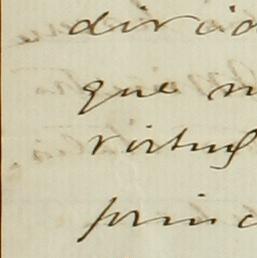 divid
que n
virtud
princ